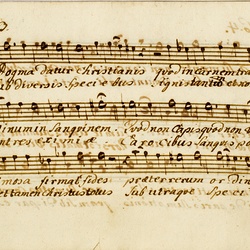 Dogma datur christianis quod in carnem tran
ub diversis speciebus signis tantum et no
inum in sanguinem quod non capis quod non
ntres eximiae Caro cibus sanguis po
mosa firmat fides praeter rerum or din
et tamen christus totus sub utraque speci